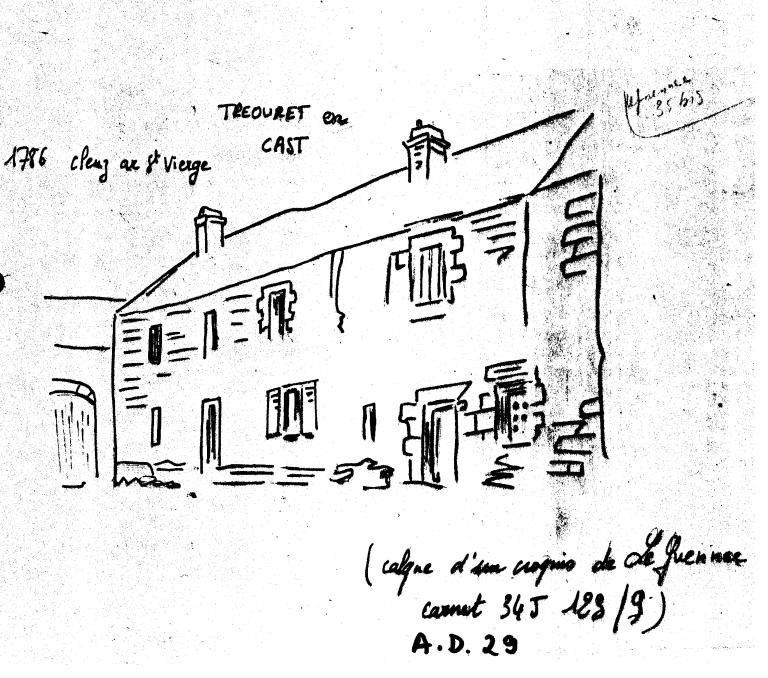 TREOURET en
CAST
1786 cleuz ar St Vierge
35 bis
(calque d'un croquis de Le Guennec
carnet 34J 123/9)
A.D. 29